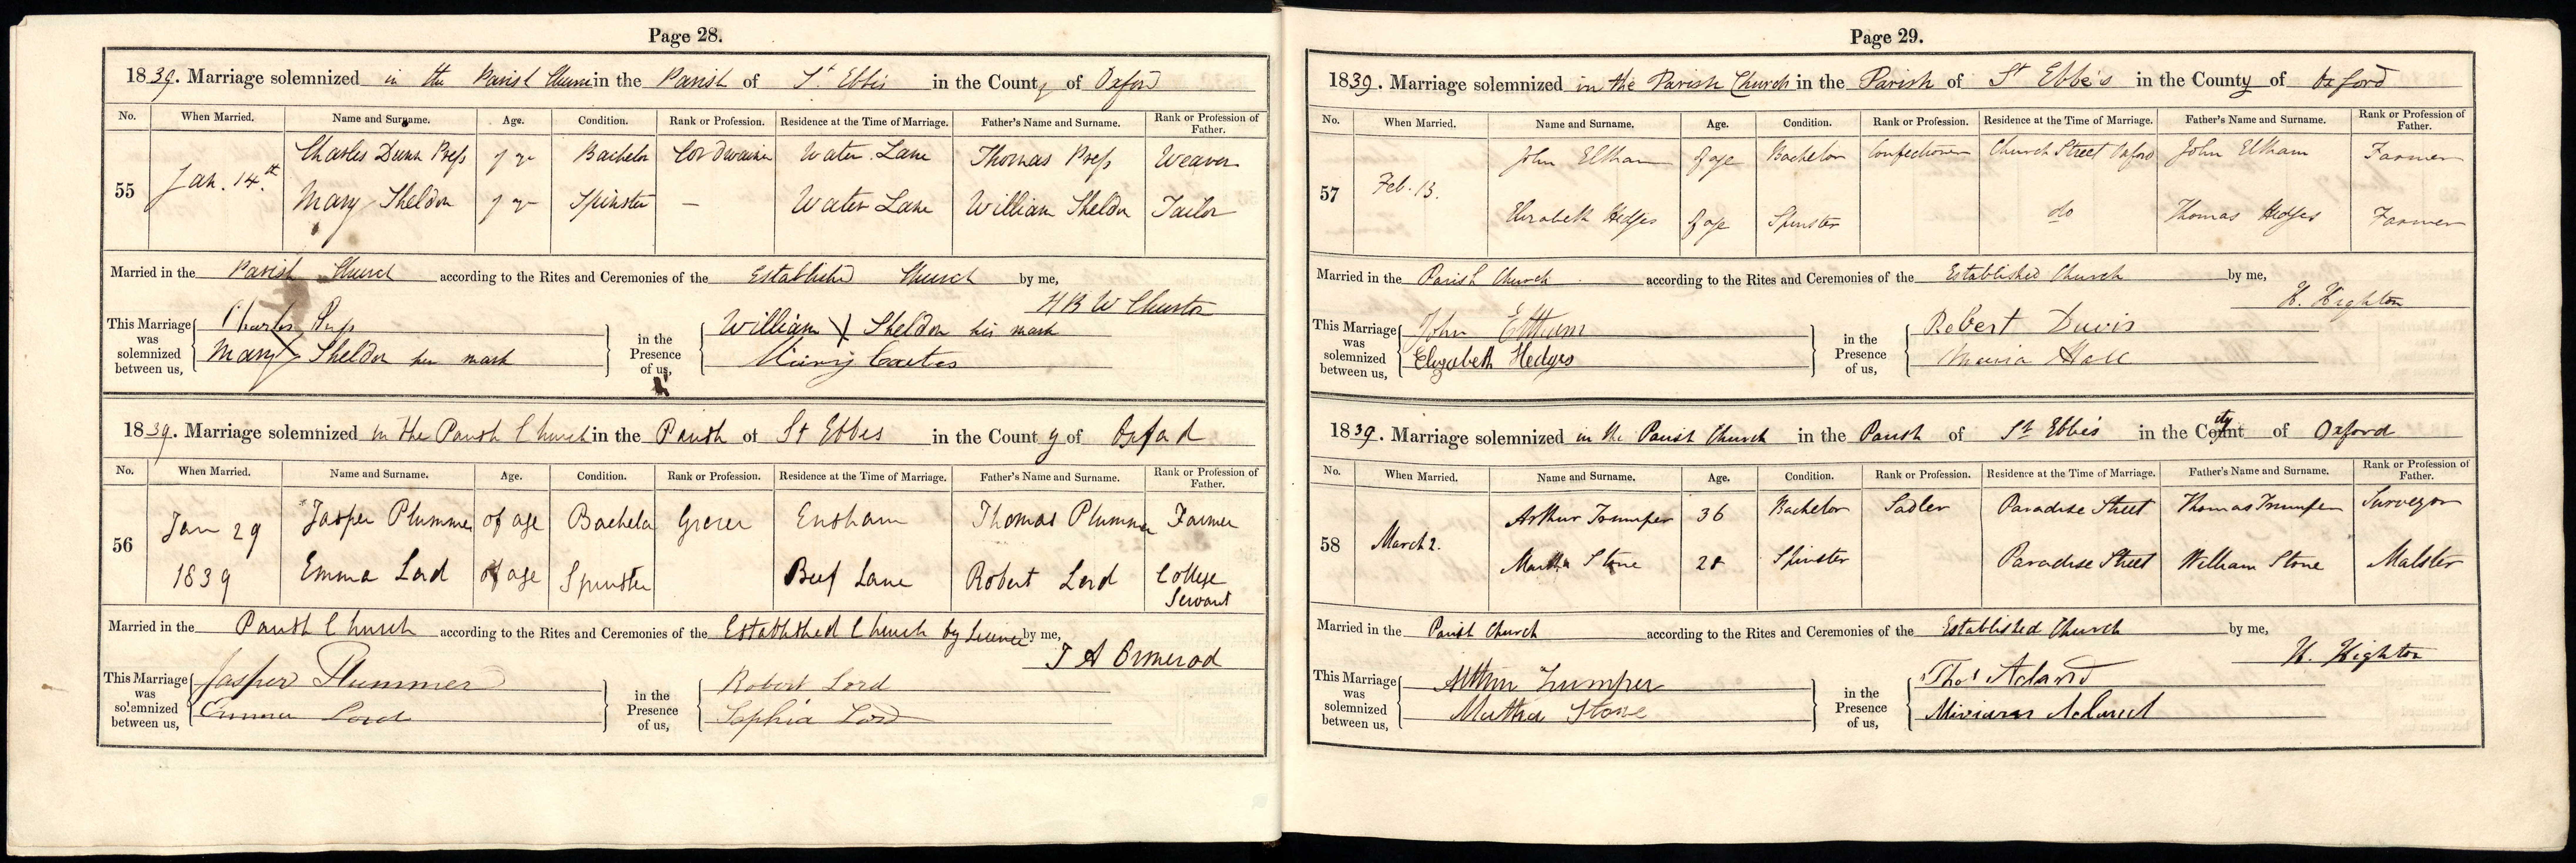 Page 28.
1839. Marriage solemnized in the Parish Church in the Parish of St. Ebbes in the County of Oxford
No. When Married. Name and Surname. Age. Condition. Rank or Profession. Residence at the Time of Marriage. Father's Name and Surname. Rank or Profession of Father.
55 Jan. 14.th Charles Dunn Press Bachelor Cordwainer Water Lane Thomas Press Weaver
Mary Sheldon Spinster — Water Lane William Sheldon Tailor
Married in the Parish Church according to the Rites and Ceremonies of the Established Church by me,
H B W Churton
This Marriage was solemnized between us, Charles Press
Mary X Sheldon her mark
in the Presence of us, William X Sheldon his mark
1839. Marriage solemnized in the Parish Church in the Parish of St Ebbes in the County of Oxford
No. When Married. Name and Surname. Age. Condition. Rank or Profession. Residence at the Time of Marriage. Father's Name and Surname. Rank or Profession of Father.
56 Jan 29 1839 Jasper Plummer of age Bachelor Grocer Ensham Thomas Plummer Farmer
Emma Lord of age Spinster Beef Lane Robert Lord College Servant
Married in the Parish Church according to the Rites and Ceremonies of the Established Church by Licence by me,
T A Ormerod
This Marriage was solemnized between us, Jasper Plummer
Emma Lord
in the Presence of us, Robert Lord
Sophia Lord
Page 29.
1839. Marriage solemnized in the Parish Church in the Parish of St Ebbe's in the County of Oxford
No. When Married. Name and Surname. Age. Condition. Rank or Profession. Residence at the Time of Marriage. Father's Name and Surname. Rank or Profession of Father.
57 Feb. 13. John Eltham of age Bachelor Confectioner Church Street Oxford John Eltham Farmer
Elizabeth Hedges of age Spinster do Thomas Hedges Farmer
Married in the Parish Church according to the Rites and Ceremonies of the Established Church by me,
H. Highton
This Marriage was solemnized between us, John Eltham
Elizabeth Hedges
in the Presence of us, Robert Davis
Maria Hall
1839. Marriage solemnized in the Parish Church in the Parish of St Ebbe's in the City of Oxford
No. When Married. Name and Surname. Age. Condition. Rank or Profession. Residence at the Time of Marriage. Father's Name and Surname. Rank or Profession of Father.
58 March 2. Arthur Trumper 36 Bachelor Sadler Paradise Street Thomas Trumper Surveyor
Martha Stone 28 Spinster Paradise Street William Stone Malster
Married in the Parish Church according to the Rites and Ceremonies of the Established Church by me,
H. Highton
This Marriage was solemnized between us, Arthur Trumper
Martha Stone
in the Presence of us, Thos Acland
Miriam Acland